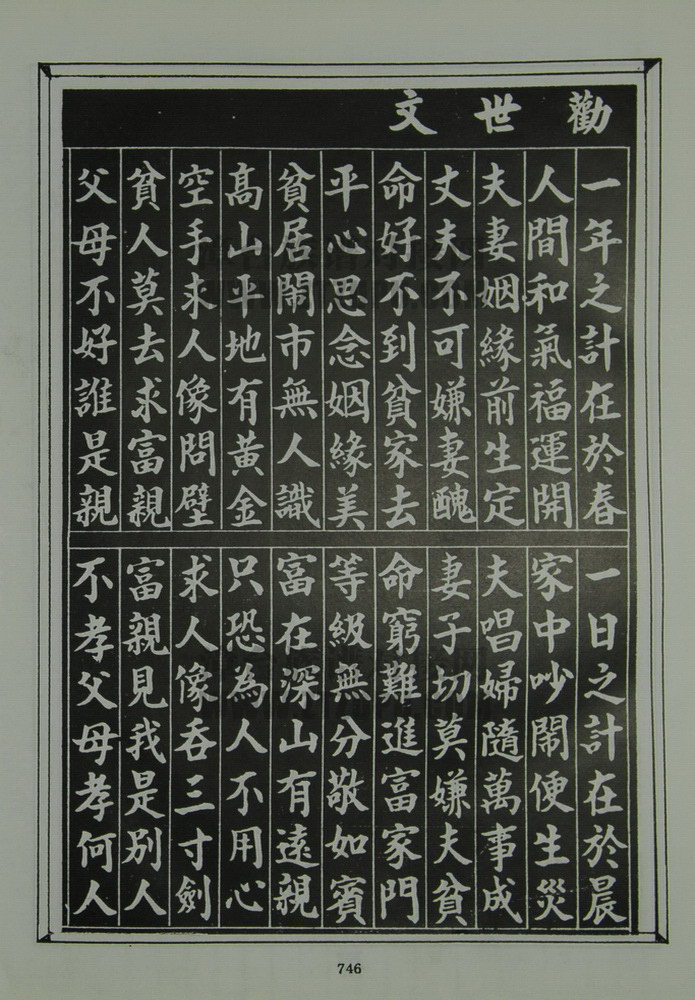 勸世文
一年之計在於春
一日之計在於晨
人間和氣福運開
家中吵鬧便生災
夫妻姻緣前生定
夫唱婦隨萬事成
丈夫不可嫌妻醜
妻子切莫嫌夫貧
命好不到貧家去
命窮難進富家門
平心思念姻緣美
等級無分敬如賓
貧居鬧市無人識
富在深山有遠親
高山平地有黃金
只恐為人不用心
空手求人像問壁
求人像吞三寸劍
貧人莫去求富親
富親見我是別人
父母不好誰是親
不孝父母孝何人
746